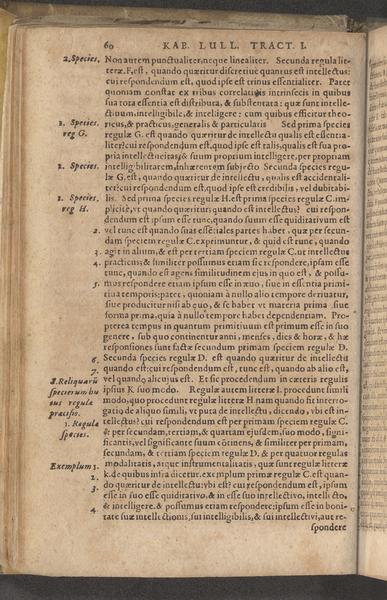 60 KAB. LULL. TRACT. I.
2. Species. Non autem punctualiter, neque linealiter. Secunda regula lit-
teræ. F, est, quando quæritur discretiuè quantus est intellectus:
cui respondendum est, quod ipse est trinus essentialiter. Patet
quoniam constat ex tribus correlatiuis intrinsecis in quibus
sua tota essentia est distributa, & substentata: quæ sunt intelle-
ctiuum, intelligibile, & intelligere: cum quibus efficitur theo-
1. Species. ricus, & practicus, generalis & particularis Sed prima species
reg G. regulæ G. est quando quæritur de intellectu qualis est essentia-
liter? cui respondendum est, quod ipse est talis, qualis est sua pro
pria intellectiuitas, & suum proprium intelligere, per propriam
2. Species. intelligibilitatem, inhærentem subjecto Secunda species regu-
læ G, est, quando quæritur de intellectu, qualis est accidentali-
ter? cui respondendum est, quod ipse est credibilis, vel dubitabi-
1. Species. lis. Sed prima species regulæ H. est prima species regulæ C. im-
reg H. plicitè, vt quando quæritur: quando est intellectus? cui respon-
dendum est ipsum esse tunc, quando suum esse quiditatiuum est
2. vel tunc est quando suas essentiales partes habet, quæ per secun-
dam speciem regulæ C. exprimuntur, & quid est tunc, quando
3. agit in alium, & est per tertiam speciem regulæ C. ut intellectus
4. practicus; & similiter possumus etiam sic respondere, ipsum esse
tunc, quando est agens similitudinem ejus in quo est, & possu-
5. mus respondere etiam ipsum esse in æuo, siue in essentia primi-
tiua temporis: patet, quoniam à nullo alio tempore deriuatur,
siue producitur nisi ab quo, & se habet vt materia prima siue
forma prima, quia à nullo tempore habet dependentiam. Pro-
pterea tempus in quantum primitiuum est primum esse in suo
genere, sub quo continentur anni, menses, dies & horæ, & hæ
responsiones sunt factæ secundum primam speciem regulæ D.
6. Secunda species regulæ D. est quando quæritur de intellectu
7. quando est: cui respondendum est, tunc est, quando ab alio est,
8. Reliquarū vel quando alicujus est. Et sic procedendum in cæteris regulis
specierum hu ipsius K suo modo. Regulæ autem litteræ I. procedunt simili
ius regula modo, quo procedunt regulæ litteræ H nam quando fit interro-
praxis. gatio de aliquo simili, vt puta de intellectu, dicendo, vbi est in-
1. Regula tellectus? cui respondendum est per primam speciem regulæ C.
species. & per secundam, tertiam, & quartam ejusdem, suo modo, signi-
ficantis, vel significante suum cōtinens, & similiter per primam,
secundam, & tertiam speciem regulæ D. & per quatuor regulas
Exemplum 1. modalitatis, atque instrumentalitatis, quæ sunt regulæ litteræ
2. k. de quibus infra dicetur. exemplum primæ regulæ C. est quan-
do quæritur de intellectu: vbi est? cui respondendum est, ipsum
3. esse in suo esse quiditatiuo, & in esse suo intellectiuo, intellecto,
& intelligere. & possumus etiam respondere: ipsum esse in boni-
4. tate suæ intellectionis, sui intelligibilis, & sui intellectiui, aut re-
spondere